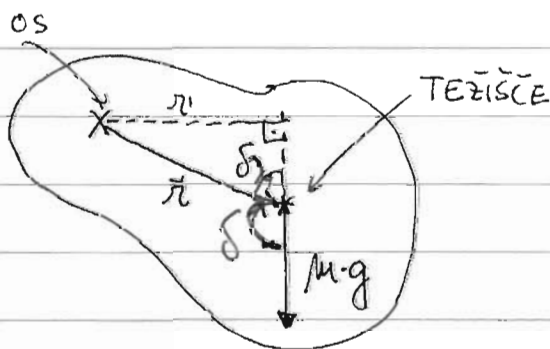 OS
TEŽIŠČE
r'
δ
r
δ
m·g